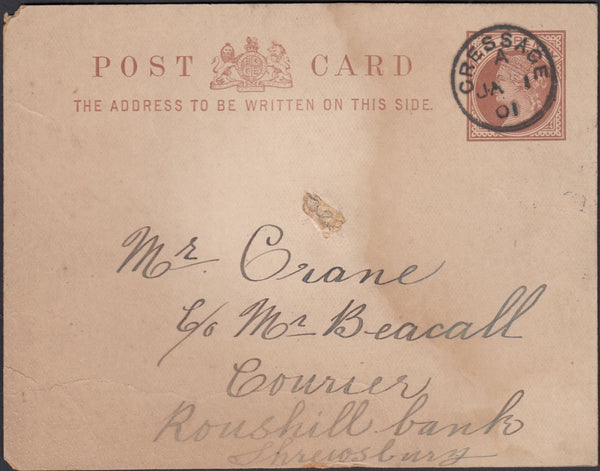 POST CARD
THE ADDRESS TO BE WRITTEN ON THIS SIDE.
CRESSAGE
A
JA 1
01
Mr. Crane
c/o Mr Beacall
Courier
Roushill bank
Shrewsbury